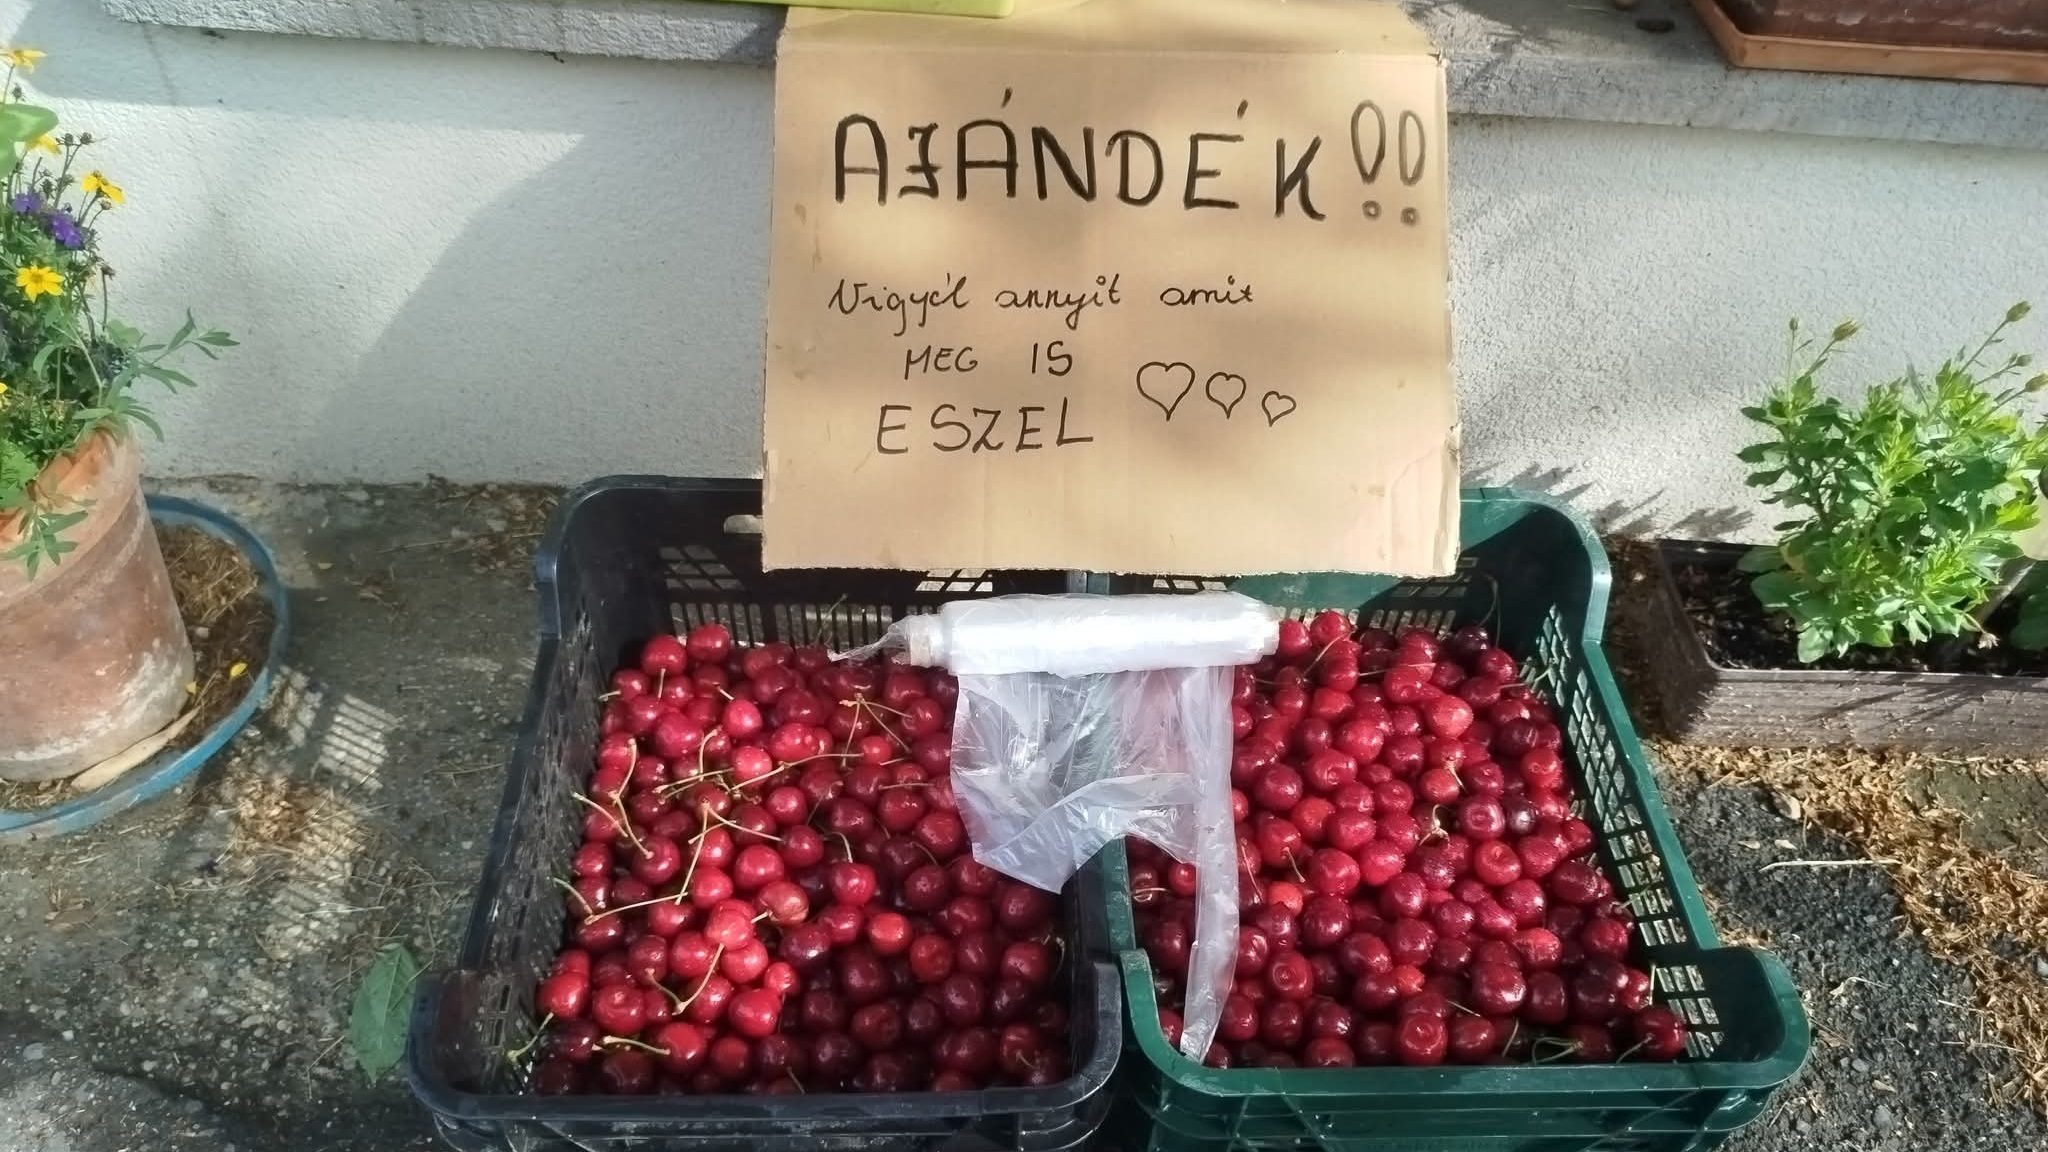 AJÁNDÉK!!
Vigyél annyit amit
MEG IS
ESZEL